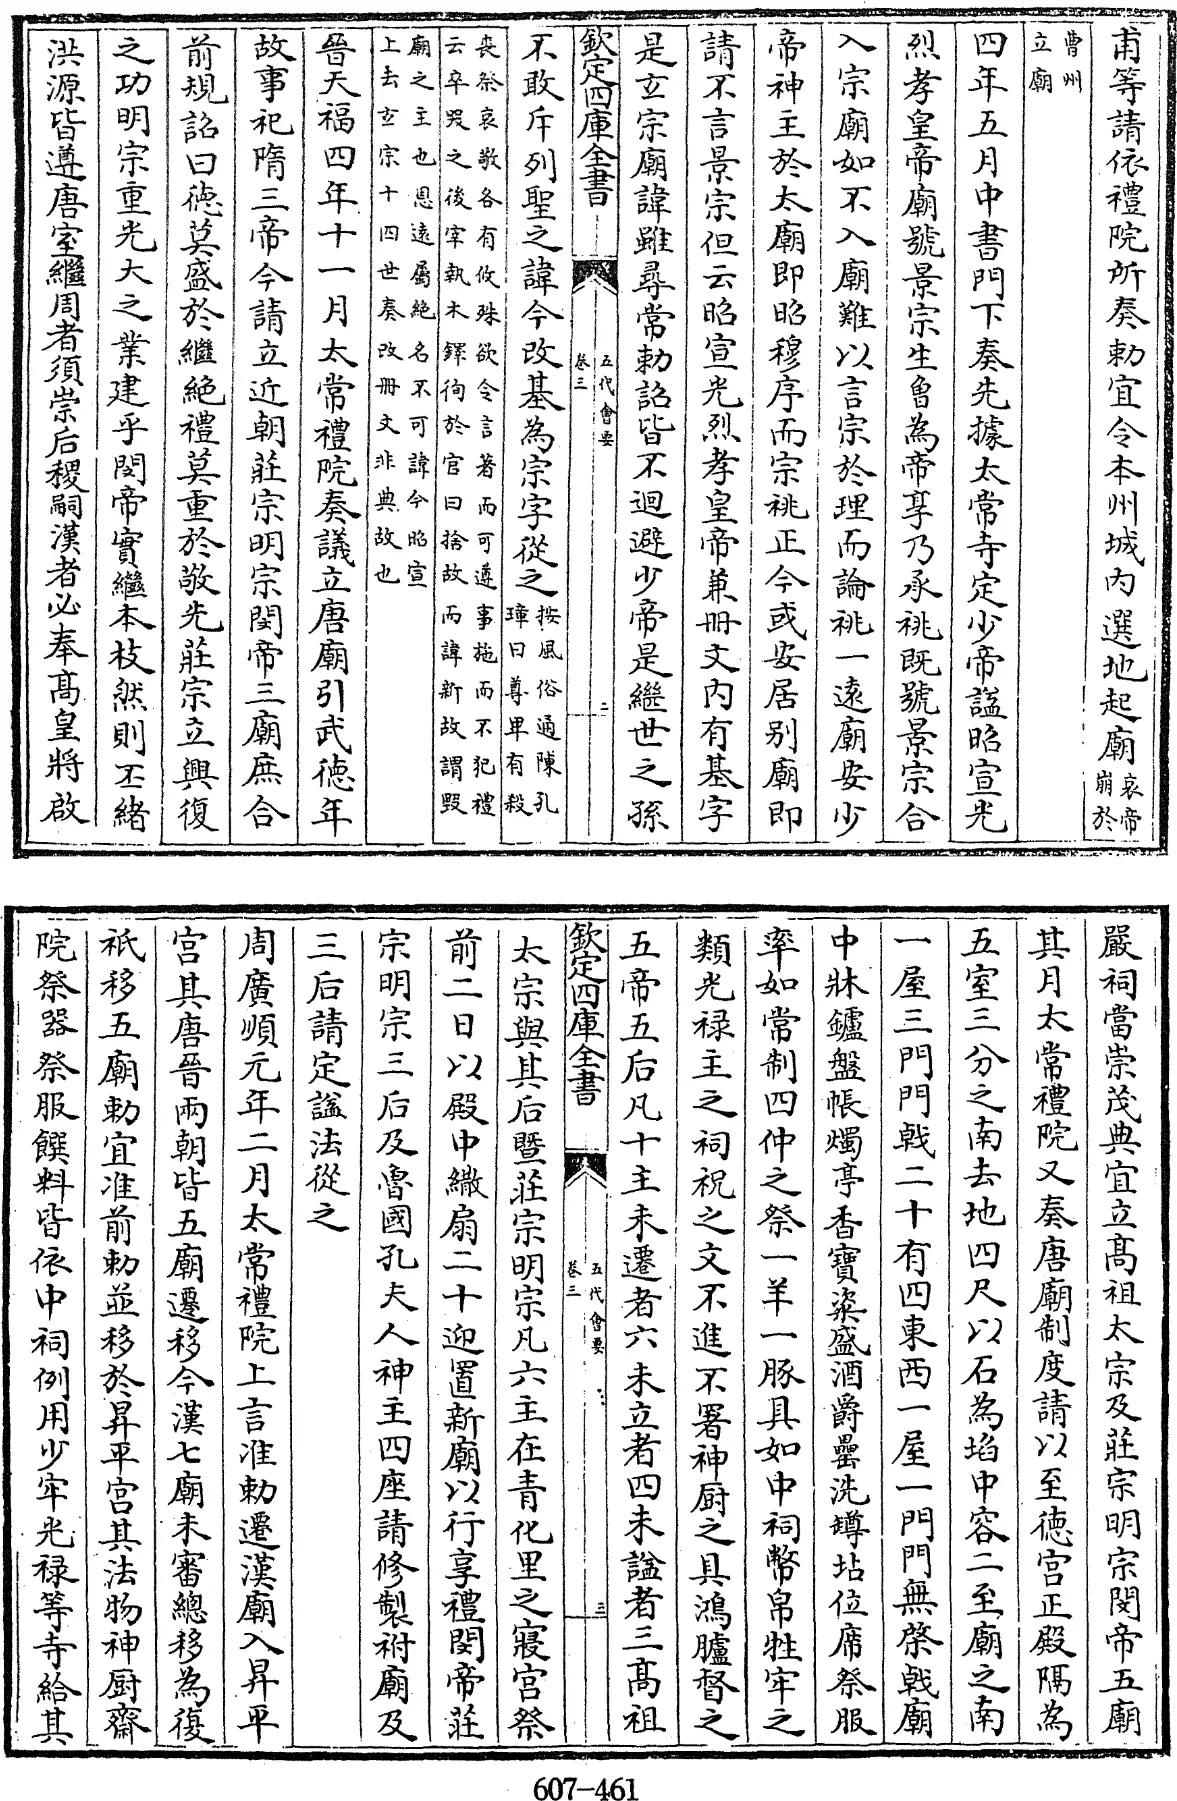 甫等請依禮院所奏勅宜令本州城内選地起廟哀帝崩於
曹州立廟
四年五月中書門下奏先據太常寺定少帝諡昭宣光
烈孝皇帝廟號景宗生曾為帝享乃承祧既號景宗合
入宗廟如不入廟難以言宗於理而論祧一遠廟安少
帝神主於太廟即昭穆序而宗祧正今或安居别廟即
請不言景宗但云昭宣光烈孝皇帝兼冊文内有基字
是玄宗廟諱雖尋常勅詔皆不迴避少帝是繼世之孫
欽定四庫全書
五代會要
卷三
二
不敢斥列聖之諱今改基為宗字從之按風俗通陳孔璋曰尊卑有殺
喪祭哀敬各有攸殊欲令言著而可遵事施而不犯禮
云卒哭之後宰執木鐸徇於宮曰捨故而諱新故謂毁
廟之主也恩遠屬絶名不可諱今昭宣
上去玄宗十四世奏改冊文非典故也
晉天福四年十一月太常禮院奏議立唐廟引武德年
故事祀隋三帝今請立近朝莊宗明宗閔帝三廟庶合
前規詔曰德莫盛於繼絶禮莫重於敬先莊宗立興復
之功明宗重光大之業建乎閔帝實繼本枝然則丕緒
洪源皆遵唐室繼周者須崇后稷嗣漢者必奉髙皇將啟
嚴祠當崇茂典宜立髙祖太宗及莊宗明宗閔帝五廟
其月太常禮院又奏唐廟制度請以至德宮正殿隔為
五室三分之南去地四尺以石為埳中容二至廟之南
一屋三門門戟二十有四東西一屋一門門無棨戟廟
中牀鑪盤帳燭亭香寶粢盛酒爵罍洗罇坫位席祭服
率如常制四仲之祭一羊一豚具如中祠幣帛牲牢之
類光禄主之祠祝之文不進不署神厨之具鴻臚督之
五帝五后凡十主未遷者六未立者四未諡者三髙祖
欽定四庫全書
五代會要
卷三
三
太宗與其后暨莊宗明宗凡六主在青化里之寢宮祭
前二日以殿中繖扇二十迎置新廟以行享禮閔帝莊
宗明宗三后及魯國孔夫人神主四座請修製祔廟及
三后請定諡法從之
周廣順元年二月太常禮院上言准勅遷漢廟入昇平
宮其唐晉兩朝皆五廟遷移今漢七廟未審總移為復
祇移五廟勅宜准前勅並移於昇平宮其法物神厨齋
院祭器祭服饌料皆依中祠例用少牢光禄等寺給其
607-461